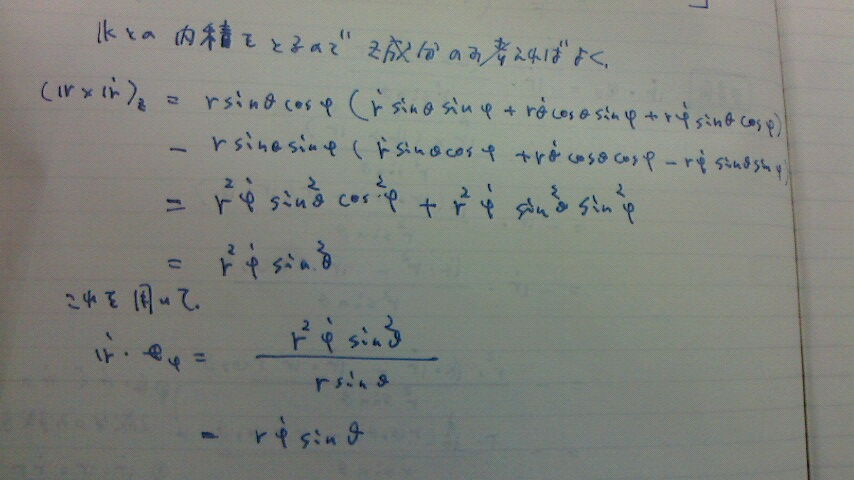 𝕜との内積をとるので z成分のみ考えればよく、
(𝕣×𝕣̇)_z = r sinθ cosφ (ṙ sinθ sinφ + rθ̇ cosθ sinφ + rφ̇ sinθ cosφ)
− r sinθ sinφ (ṙ sinθ cosφ + rθ̇ cosθ cosφ − rφ̇ sinθ sinφ)
= r²φ̇ sin²θ cos²φ + r²φ̇ sin²θ sin²φ
= r²φ̇ sin²θ
これを用いて、
𝕣̇・𝕖_φ = r²φ̇ sin²θ / r sinθ
= rφ̇ sinθ